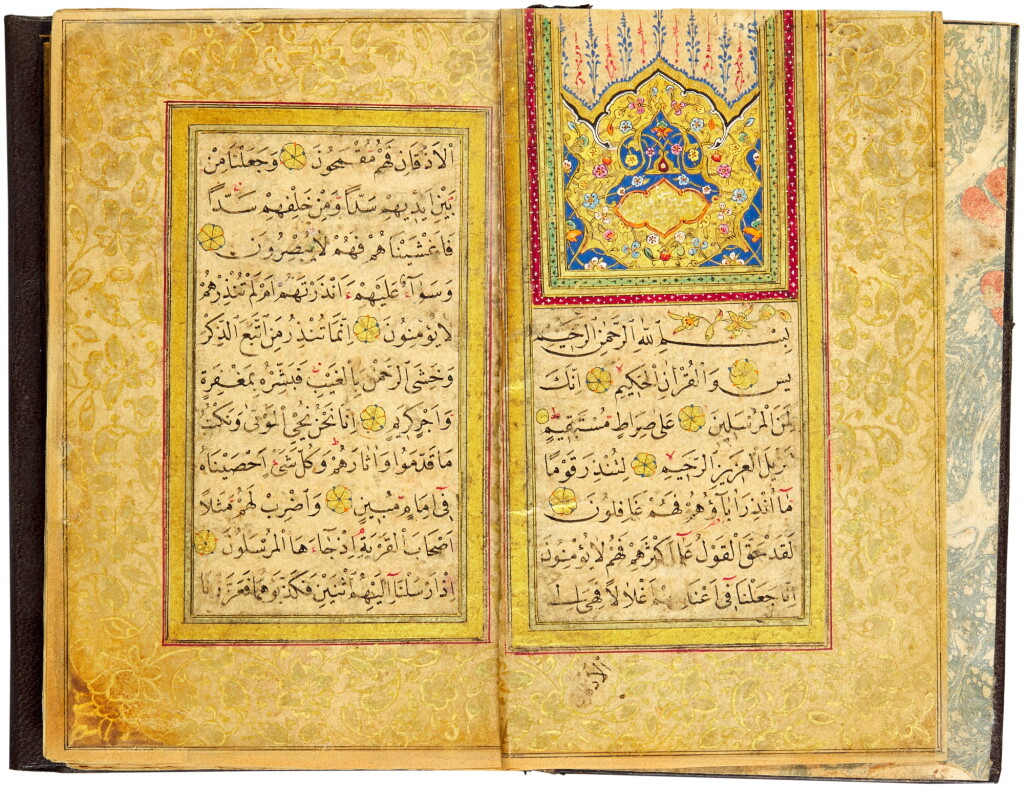 بِسْمِ اللّٰهِ الرَّحْمٰنِ الرَّحِيمِ
يس وَالْقُرْاٰنِ الْحَكِيمِ اِنَّكَ
لَمِنَ الْمُرْسَلِينَ عَلٰى صِرَاطٍ مُسْتَقِيمٍ
تَنْزِيلَ الْعَزِيزِ الرَّحِيمِ لِتُنْذِرَ قَوْمًا
مَا اُنْذِرَ اٰبَاؤُهُمْ فَهُمْ غَافِلُونَ
لَقَدْ حَقَّ الْقَوْلُ عَلٰى اَكْثَرِهِمْ فَهُمْ لَا يُؤْمِنُونَ
اِنَّا جَعَلْنَا فِى اَعْنَاقِهِمْ اَغْلَالًا فَهِىَ اِلَى
الْاَذْقَانِ
الْاَذْقَانِ فَهُمْ مُقْمَحُونَ وَجَعَلْنَا مِنْ
بَيْنِ اَيْدِيهِمْ سَدًّا وَمِنْ خَلْفِهِمْ سَدًّا
فَاَغْشَيْنَاهُمْ فَهُمْ لَا يُبْصِرُونَ
وَسَوَاءٌ عَلَيْهِمْ ءَاَنْذَرْتَهُمْ اَمْ لَمْ تُنْذِرْهُمْ
لَا يُؤْمِنُونَ اِنَّمَا تُنْذِرُ مَنِ اتَّبَعَ الذِّكْرَ
وَخَشِىَ الرَّحْمٰنَ بِالْغَيْبِ فَبَشِّرْهُ بِمَغْفِرَةٍ
وَاَجْرٍ كَرِيمٍ اِنَّا نَحْنُ نُحْيِى الْمَوْتٰى وَنَكْتُبُ
مَا قَدَّمُوا وَاٰثَارَهُمْ وَكُلَّ شَىْءٍ اَحْصَيْنَاهُ
فِى اِمَامٍ مُبِينٍ وَاضْرِبْ لَهُمْ مَثَلًا
اَصْحَابَ الْقَرْيَةِ اِذْ جَاءَهَا الْمُرْسَلُونَ
اِذْ اَرْسَلْنَا اِلَيْهِمُ اثْنَيْنِ فَكَذَّبُوهُمَا فَعَزَّزْنَا